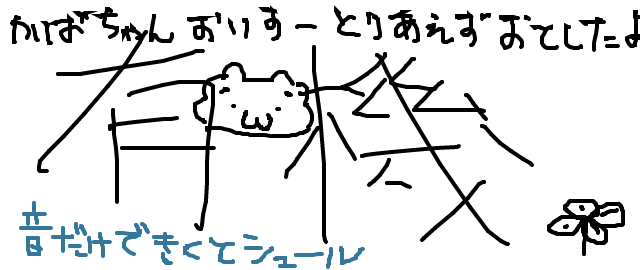 かいばちゃん おいすー とりあえず おとしたよ
有機
音だけできくとシュール